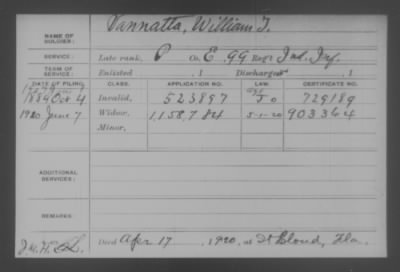 NAME OF SOLDIER: Vannatta, William T.
SERVICE: Late rank, P Co. E, 99 Reg't Ind. Inf.
TERM OF SERVICE: Enlisted , 1 Discharged , 1
DATE OF FILING. CLASS. APPLICATION NO. LAW. CERTIFICATE NO.
1889 Oct 4 Invalid, 523897 729189
1920 June 7 Widow, 1,158,784 5-1-20 903364
Minor,
ADDITIONAL SERVICES:
REMARKS:
Died Apr 17, 1920, at St Cloud, Fla.